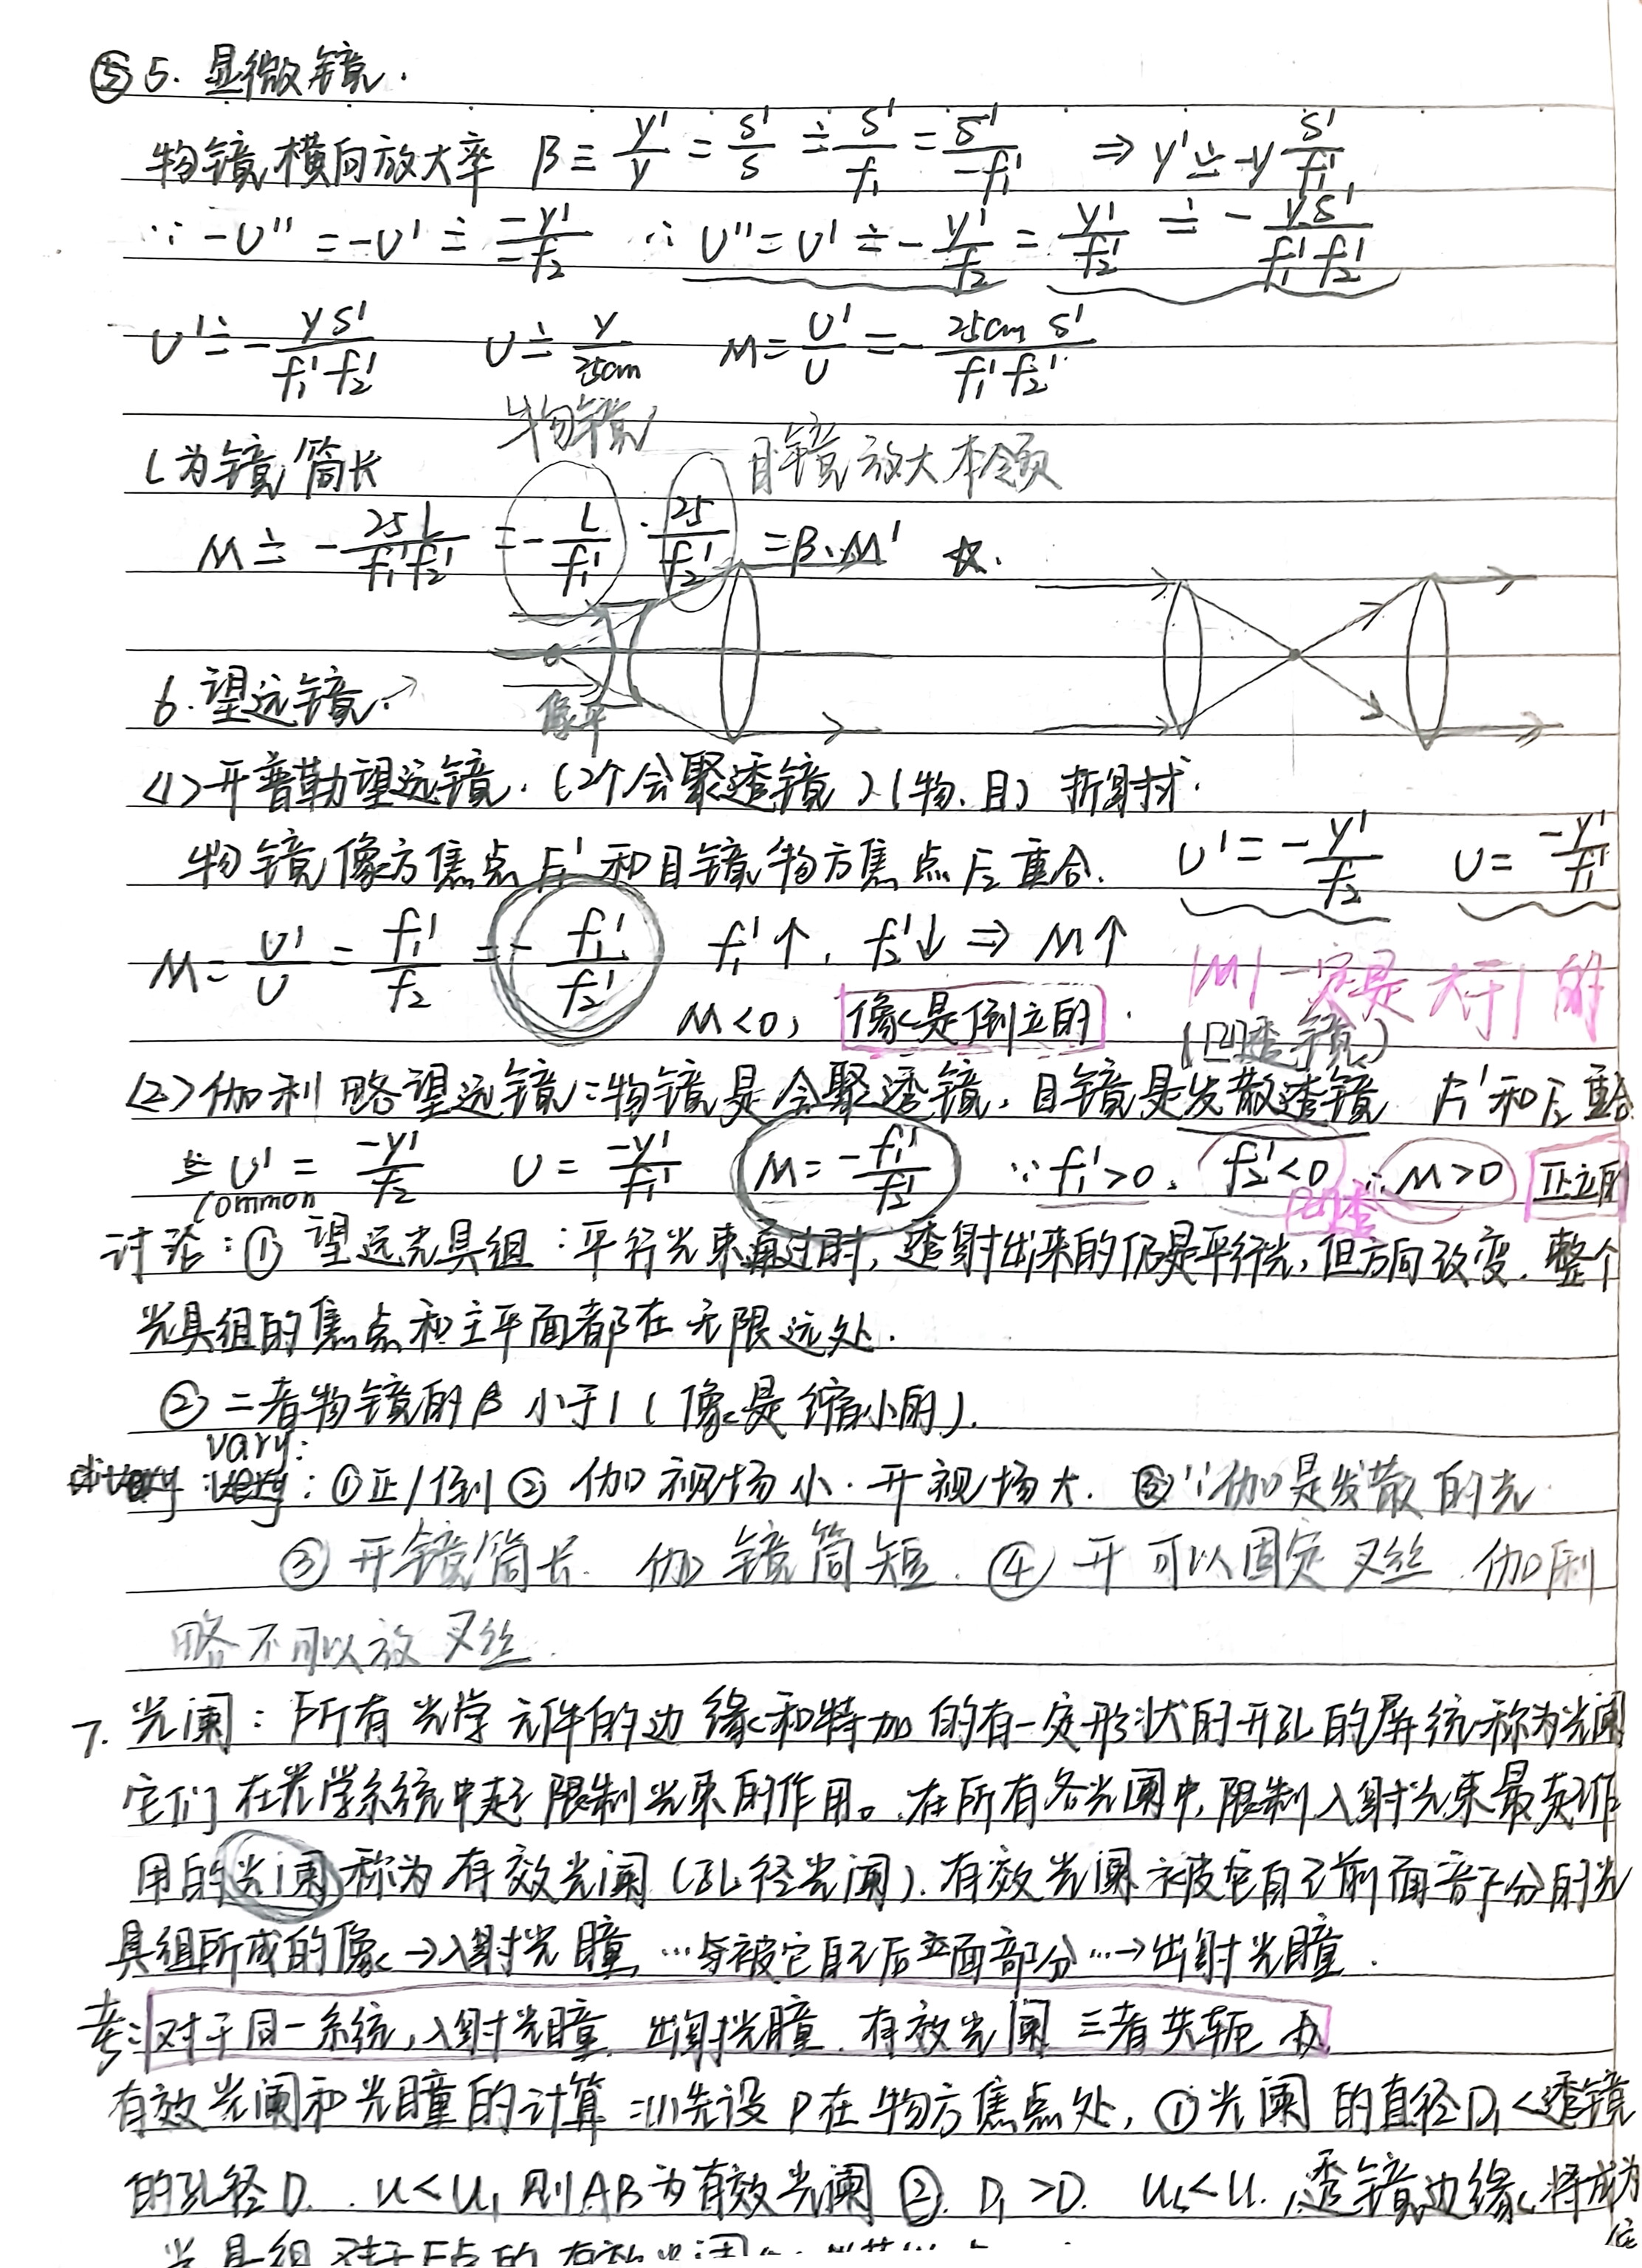 ⑤ 5. 显微镜.
物镜横向放大率 β = y'/y = s'/s ≐ s'/f₁ = s'/-f₁' ⇒ y' ≐ -y s'/f₁'
∵ -U'' = -U' ≐ -y'/-f₂ ∴ U'' = U' ≐ -y'/f₂ = y'/f₂' ≐ - ys'/f₁'f₂'
U' ≐ - ys'/f₁'f₂' U ≐ y/25cm M = U'/U = - 25cm s'/f₁'f₂'
物镜 目镜放大本领
L为镜筒长
M ≐ - 25L/f₁'f₂' = - L/f₁' · 25/f₂' = β·M' ☆.
6. 望远镜. →
像平
<1>开普勒望远镜. (2个会聚透镜)(物、目) 折射式.
物镜像方焦点F₁'和目镜物方焦点F₂重合. U' = - y'/f₂ U = -y'/f₁'
M = U'/U = f₁'/f₂ = - f₁'/f₂' f₁'↑, f₂'↓ ⇒ M↑
|M|一定是大于1的
M<0, 像是倒立的.
(凹透镜)
(2)伽利略望远镜:物镜是会聚透镜, 目镜是发散透镜 F₁'和F₂重合
U' = -y'/f₂ U = -y'/f₁' M = - f₁'/f₂' ∵ f₁'>0, f₂'<0 ∴ M>0 正立的
common
凹透
讨论:① 望远光具组:平行光束通过时, 透射出来的仍是平行光, 但方向改变. 整个
光具组的焦点和主平面都在无限远处.
② 二者物镜的β小于1(像是缩小的).
vary:
①正/倒 ② 伽视场小. 开视场大. ∵伽是发散的光
③ 开镜筒长. 伽镜筒短. ④ 开可以固定叉丝. 伽利
略不可以放叉丝.
7. 光阑:所有光学元件的边缘和特加的有一定形状的开孔的屏统称为光阑
它们在光学系统中起限制光束的作用。在所有各光阑中, 限制入射光束最起作
用的光阑称为有效光阑(孔径光阑). 有效光阑被它自己前面部分的光
具组所成的像→入射光瞳, …被它自己后面部分…→出射光瞳.
考:对于同一系统, 入射光瞳、出射光瞳、有效光阑三者共轭
有效光阑和光瞳的计算:(1)先设P在物方焦点处, ①光阑的直径D₁<透镜
的孔径D. u<u₁ 则AB为有效光阑 ②. D₁>D. u₂<u. 透镜边缘将成为
光具组对于F点的有效光阑